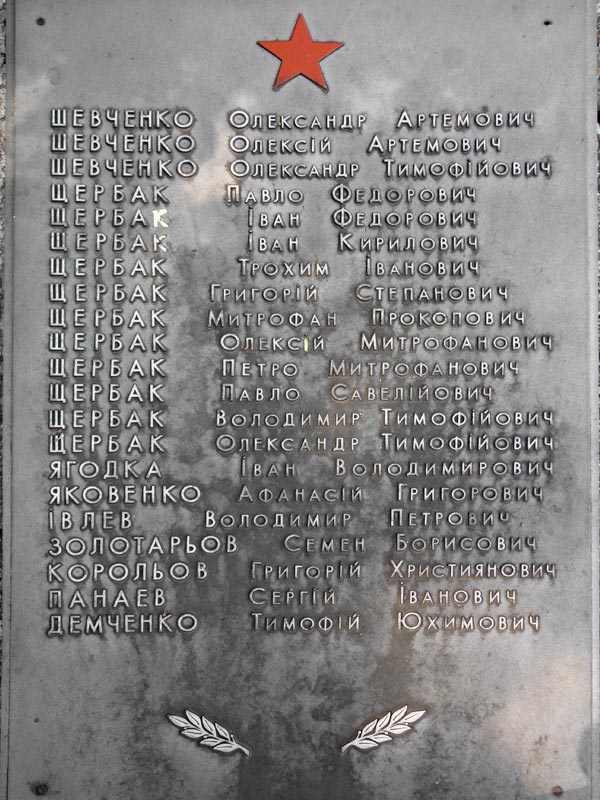 ШЕВЧЕНКО ОЛЕКСАНДР АРТЕМОВИЧ
ШЕВЧЕНКО ОЛЕКСІЙ АРТЕМОВИЧ
ШЕВЧЕНКО ОЛЕКСАНДР ТИМОФІЙОВИЧ
ЩЕРБАК ПАВЛО ФЕДОРОВИЧ
ЩЕРБАК ІВАН ФЕДОРОВИЧ
ЩЕРБАК ІВАН КИРИЛОВИЧ
ЩЕРБАК ТРОХИМ ІВАНОВИЧ
ЩЕРБАК ГРИГОРІЙ СТЕПАНОВИЧ
ЩЕРБАК МИТРОФАН ПРОКОПОВИЧ
ЩЕРБАК ОЛЕКСІЙ МИТРОФАНОВИЧ
ЩЕРБАК ПЕТРО МИТРОФАНОВИЧ
ЩЕРБАК ПАВЛО САВЕЛІЙОВИЧ
ЩЕРБАК ВОЛОДИМИР ТИМОФІЙОВИЧ
ЩЕРБАК ОЛЕКСАНДР ТИМОФІЙОВИЧ
ЯГОДКА ІВАН ВОЛОДИМИРОВИЧ
ЯКОВЕНКО АФАНАСІЙ ГРИГОРОВИЧ
ІВЛЕВ ВОЛОДИМИР ПЕТРОВИЧ
ЗОЛОТАРЬОВ СЕМЕН БОРИСОВИЧ
КОРОЛЬОВ ГРИГОРІЙ ХРИСТИЯНОВИЧ
ПАНАЕВ СЕРГІЙ ІВАНОВИЧ
ДЕМЧЕНКО ТИМОФІЙ ЮХИМОВИЧ